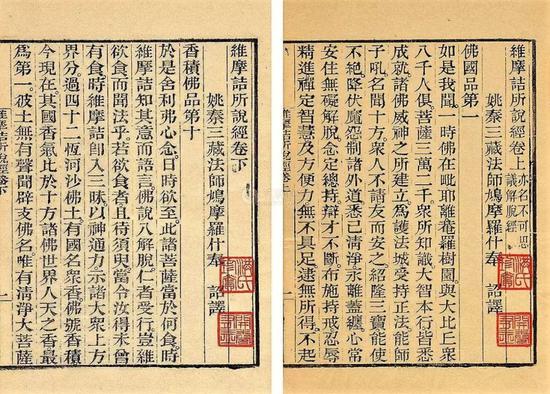 維摩詰所說經卷上 亦名不可思議解脫經
姚秦三藏法師鳩摩羅什奉 詔譯
佛國品第一
如是我聞一時佛在毗耶離菴羅樹園與大比丘衆
八千人俱菩薩三萬二千衆所知識大智本行皆悉
成就諸佛威神之所建立爲護法城受持正法能師
子吼名聞十方衆人不請友而安之紹隆三寶能使
不絕降伏魔怨制諸外道悉已清淨永離蓋纏心常
安住無礙解脫念定總持辯才不斷布施持戒忍辱
精進禪定智慧及方便力無不具足逮無所得不起
維摩詰所說經卷上
維摩詰所說經卷下
姚秦三藏法師鳩摩羅什奉 詔譯
香積佛品第十
於是舍利弗心念日時欲至此諸菩薩當於何食時
維摩詰知其意而語言佛說八解脫仁者受行豈雜
欲食而聞法乎若欲食者且待須臾當令汝得未曾
有食時維摩詰卽入三昧以神通力示諸大衆上方
界分過四十二恆河沙佛土有國名衆香佛號香積
今現在其國香氣比於十方諸佛世界人天之香最
爲第一彼土無有聲聞辟支佛名唯有清淨大菩薩
維摩詰所說經卷下